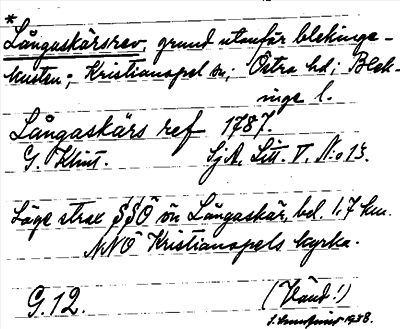 *
Långaskärsrev, grund utanför blekinge-
kusten; Kristianopel sn; Östra hd; Blek-
inge l.
Långaskärs ref 1787.
G. Klint. SjA, Litt. V, N:o 13.
Läge strax SSÖ ön Långaskär, bel. 1,7 km.
NNÖ Kristianopels kyrka.
G. 12. (Vänd!)
1938.